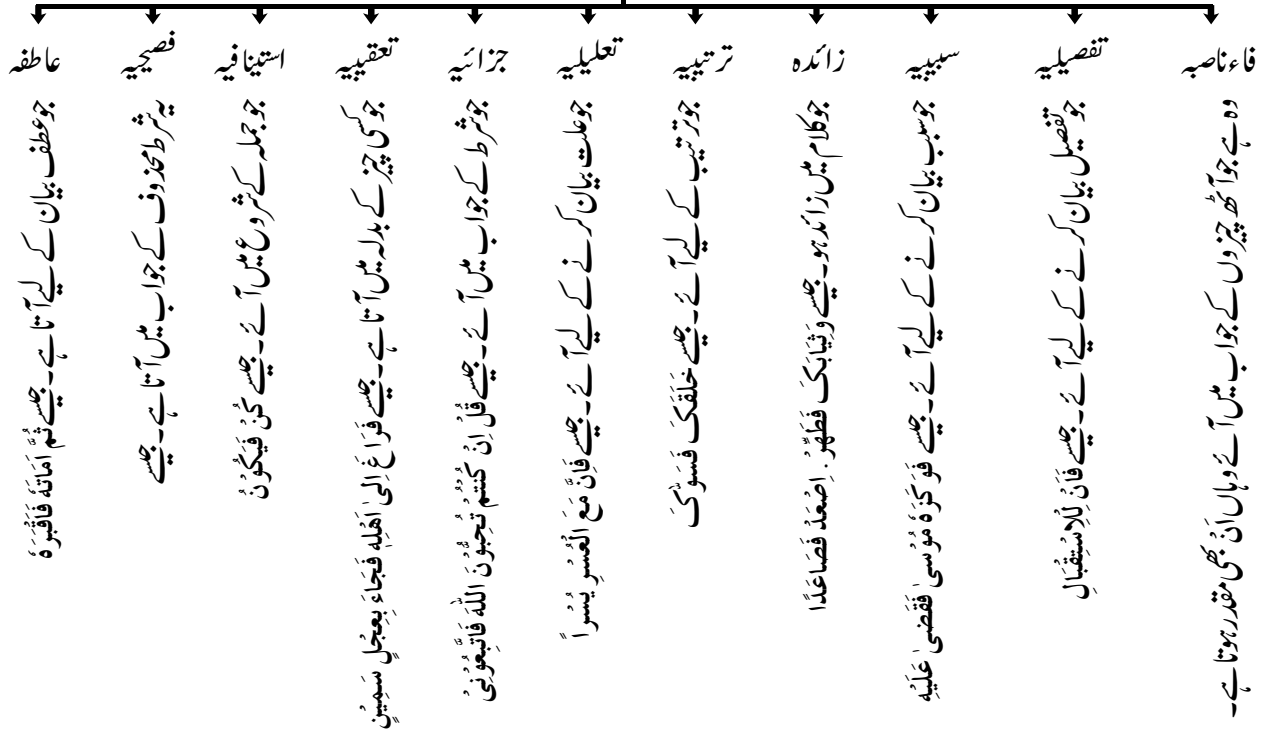 فاء ناصبہ
وہ ہے جو آٹھ چیزوں کے جواب میں آئے وہاں اَنْ بھی مقدر ہوتا ہے۔
تفصیلیہ
جو تفصیل بیان کرنے کے لیے آئے۔ جیسے فَاَنْ لِلْاِسْتِقْبَالِ
سببیہ
جو سبب بیان کرنے کے لیے آئے۔ جیسے فَوَكَزَهٗ مُوْسىٰ فَقَضىٰ عَلَيْهِ
زائدہ
جو کلام میں زائد ہو۔ جیسے وَثِيَابَكَ فَطَهِّرْ. اِصْعَدْ فَصَاعَدًا
ترتیبیہ
جو ترتیب کے لیے آئے۔ جیسے خَلَقَكَ فَسَوّٰكَ
تعلیلیہ
جو علت بیان کرنے کے لیے آئے۔ جیسے فَاِنَّ مَعَ الْعُسْرِ يُسْراً
جزائیہ
جو شرط کے جواب میں آئے۔ جیسے قُلْ اِنْ كُنْتُمْ تُحِبُّوْنَ اللّٰهَ فَاتَّبِعُوْنِىْ
تعقیبیہ
جو کسی چیز کے بدلہ میں آتا ہے۔ جیسے فَرَاغَ اِلىٰ اَهْلِهٖ فَجَاءَ بِعِجْلٍ سَمِيْنٍ
استینافیہ
جو جملہ کے شروع میں آئے۔ جیسے كُنْ فَيَكُوْنُ
فصیحیہ
یہ شرط محذوف کے جواب میں آتا ہے۔ جیسے
عاطفہ
جو عطف بیان کے لیے آتا ہے۔ جیسے ثُمَّ اَمَاتَهٗ فَاَقْبَرَهٗ